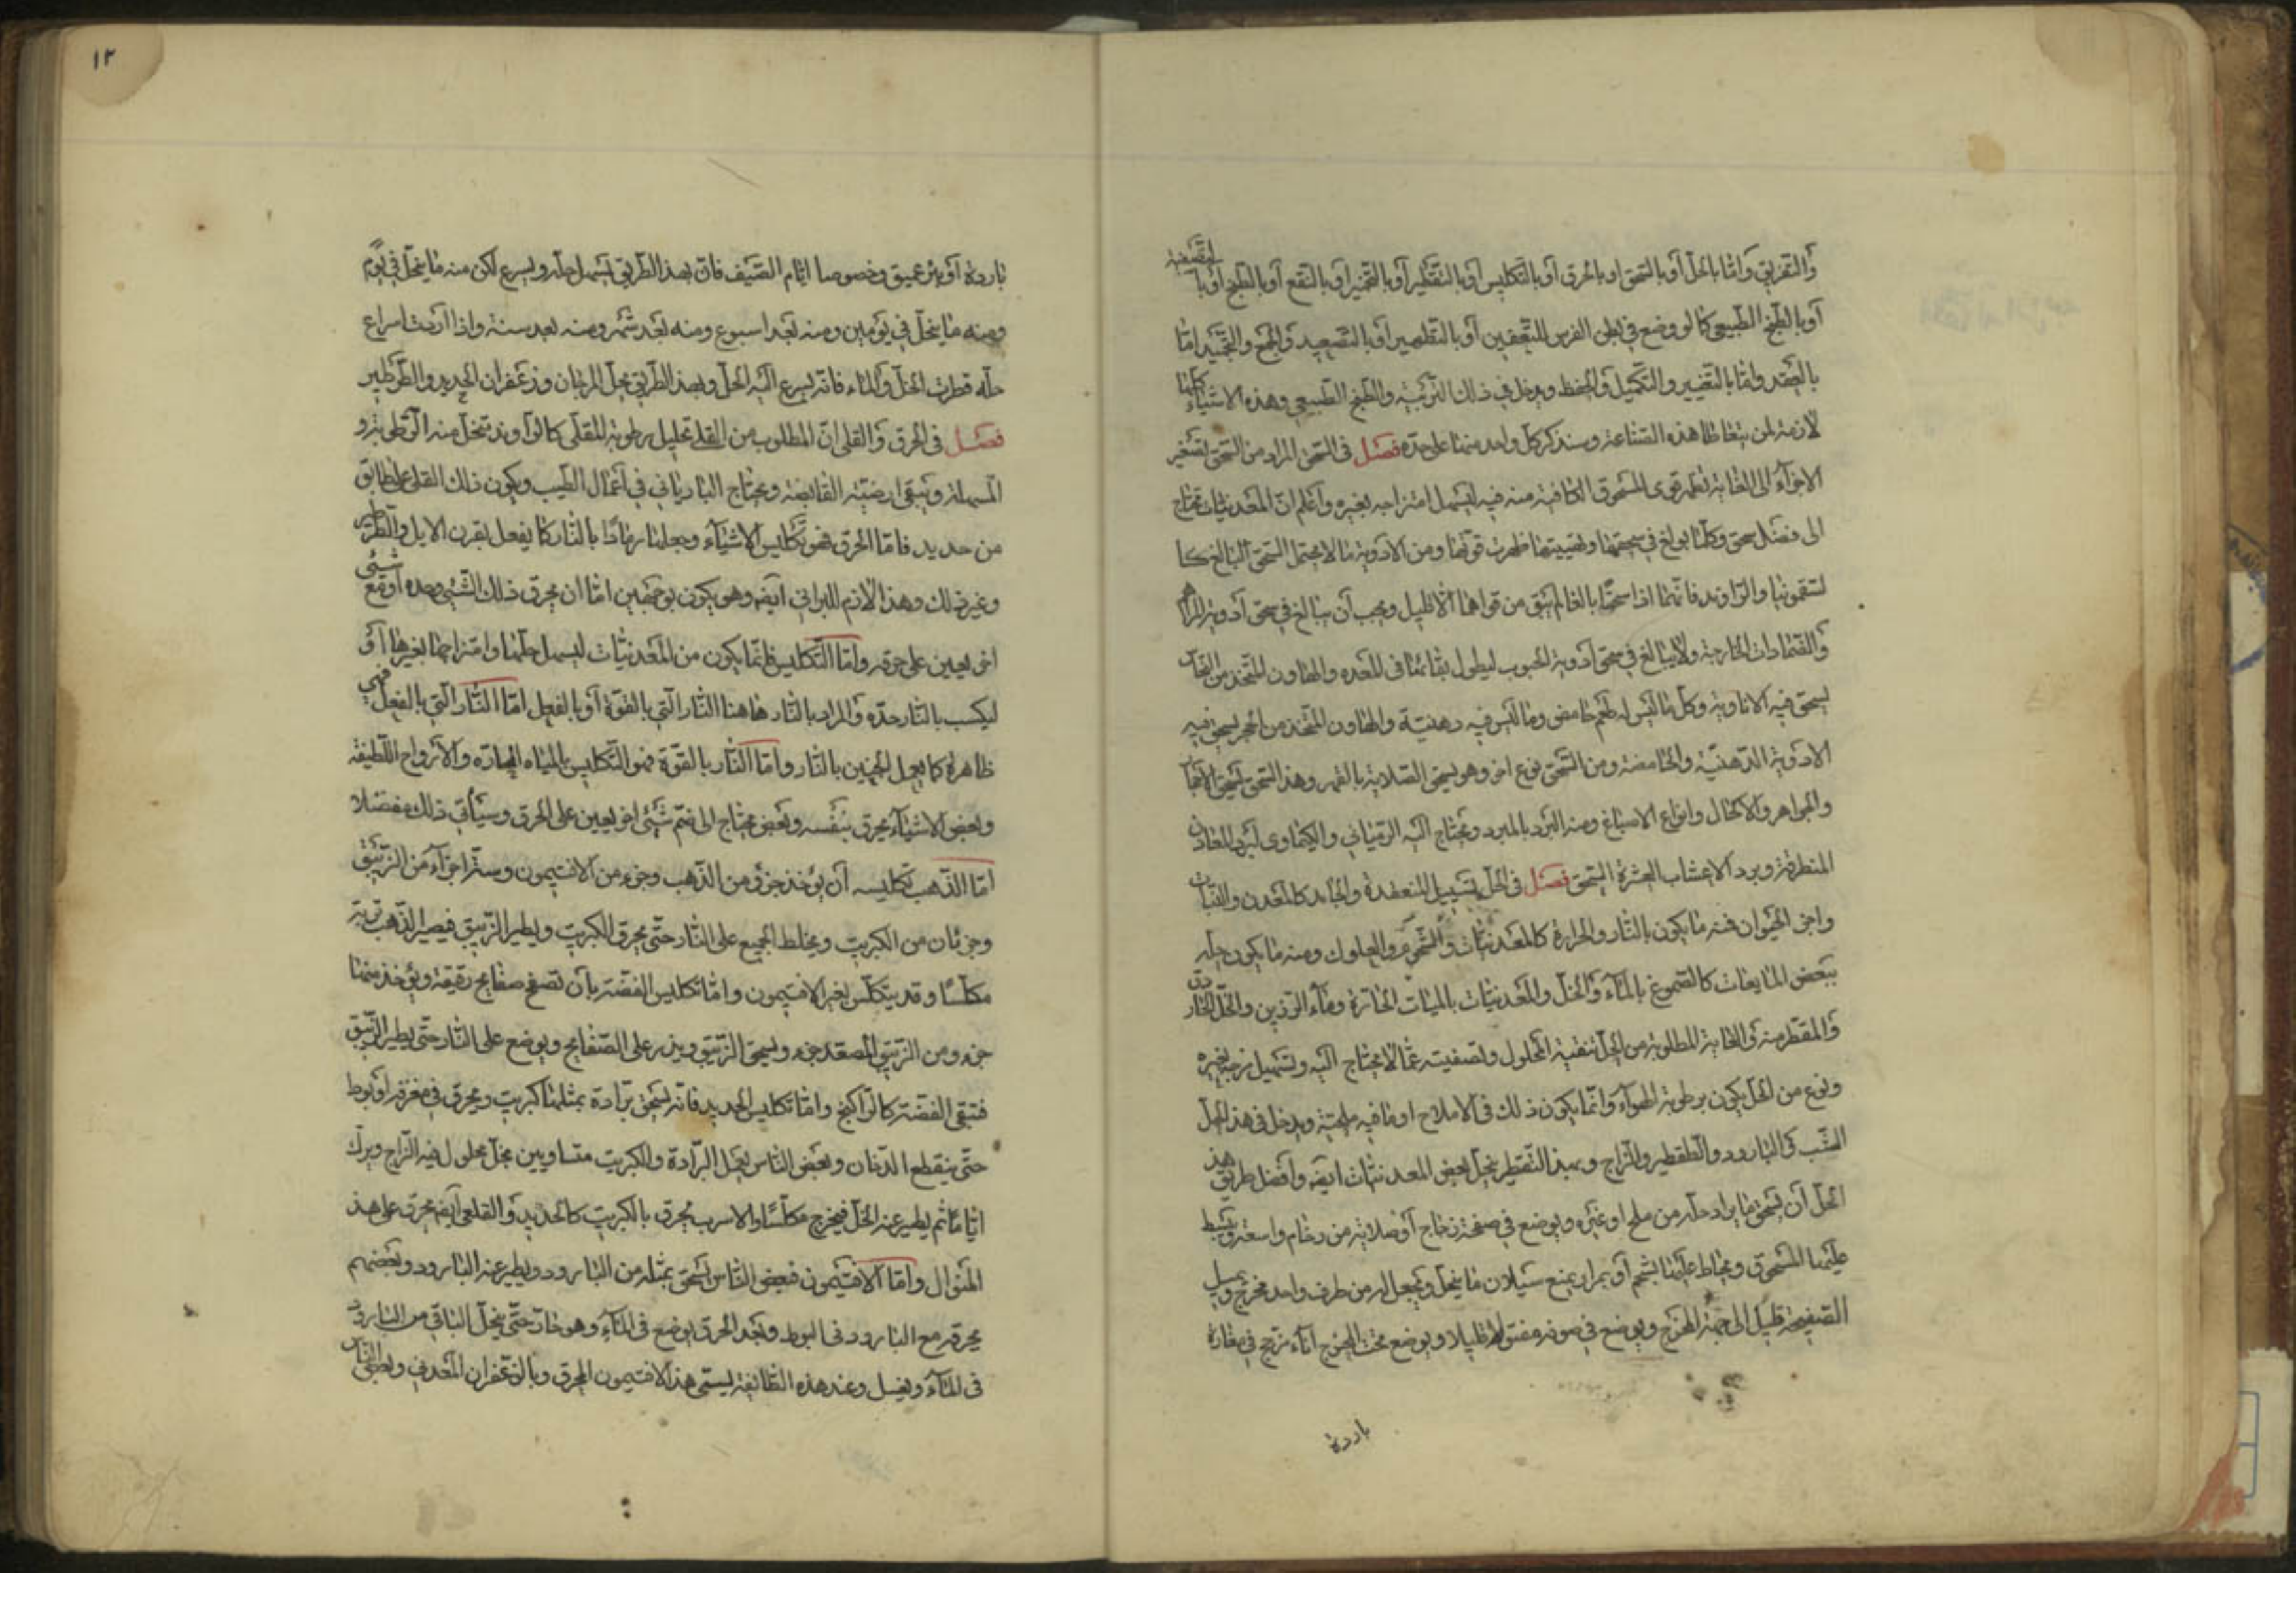 والتفريق واما بالحل او بالسحق او بالحرق او بالتكليس او بالتقطير او بالتخمير او بالنقع او بالطبخ او با
لتصفية
او بالطبخ الطبيعي كما لو وضع في بطن الفرس للتعفين او بالتطهير او بالتصعيد والجمع والتجميد اما
بالعقد واما بالتغيير والتكميل والحفظ ويدخل في ذلك التربية والطبخ الطبيعي وهذه الاشياء كلها
لازمة لمن يتعاطا هذه الصناعة وسنذكر كل واحد منها على حدة فصل في السحق المراد من السحق تصغير
الاجزآء الى الغاية لتظهر قوى المسحوق الكافية منه فيه ليسهل امتزاجه بغيره واعلم ان المعدنيات تحتاج
الى فضل سحق وكلما بولغ في سحقها وتهبيتها ظهرت قوتها ومن الادوية ما لا يحتمل السحق البالغ كا
لسقمونيا والراوند فانهما اذا سحقا بالغا لم يبق من قواهما الا قليل ويجب ان يبالغ في سحق ادوية المراهم
والضمادات الخارجة ولا يبالغ في سحق ادوية الحبوب ليطول بقائها في المعده والهاون المتخذ من النحاس
يسحق فيه الافاوية وكل ما ليس له طعم حامض وما ليس فيه دهنية والهاون المتخذ من الحجر يسحق فيه
الادوية الدهنية والحامضة ومن السحق نوع اخر وهو يسحق الصلاية بالفهر وهذا السحق لسحق الاحجار
والجواهر والاكحال وانواع الاصباغ ومنه البرد بالمبرد ويحتاج اليه الترياقي والكيماوي لبرد المعادن
المنطرقة وبرد الاعشاب العسرة السحق فصل في الحل تسييل المنعقدة والجامد كالمعدن والنبات
واجزا الحيوان فمنه ما يكون بالنار والحرارة كالمعدنيات والشحوم والعلوك ومنه ما يكون حله
ببعض المايعات كالصموغ بالمآء والخل والمعدنيات بالمياه الحارة ومآء الرزين والخل الحاذق
والمقطر منه والغاية المطلوبة من الحل تنقية المحلول وتصفيته عما لا يحتاج اليه وتسهيل مزجه بغيره
ونوع من الحل يكون برطوبة الهوآء وانما يكون ذلك في الاملاح او ما فيه ملحية ويدخل في هذا الحل
الشب والبارود والطقطير والزاج وبهذا التقطر ينحل بعض المعدنيات ايضا وافضل طريق هذ
الحل ان يسحق ما يراد حله من ملح او غيره ويوضع في صفحة زجاج او صلاية من رخام واسعة ويبسط
عليها المسحوق ويحاط عليها بشحم او بمرار يمنع سيلان ما ينحل ويجعل له من طرف واحد مخرج ويميل
الصفيحة قليل الى جهة المخرج ويوضع في صوفة مفتولة قليلا ويوضع تحت المخرج اناء مزجج في مغارة
باردة
١٢
باردة او بئر عميق وخصوصا ايام الصيف فان بهذ الطريق يسهل حله ويسرع لكن منه ما ينحل في يوم
ومنه ما ينحل في يومين ومنه بعد اسبوع ومنه بعد شهر ومنه بعد سنة واذا اردت اسراع
حله قطرت الخل والماء فانه يسرع اليه الحل وبهذ الطريق يحل المرجان وزعفران الحديد والطرطير
فصل في الحرق والقلي ان المطلوب من القلي تحليل رطوبة المقلى كالراوند تنحل منه الرطوبة و
المسهلة وتبقى ارضيته القابضة ويحتاج البادرياني في اعمال الطيب ويكون ذلك القلي على طابق
من حديد فاما الحرق فهو تكليس الاشيآء وجعلها رمادا بالنار كما يفعل بقرن الايل والطرطير
وغير ذلك وهذا لازم للبراني ايضا وهو يكون بوجهين اما ان يحرق ذلك الشيئ وحده او مع شيئ
اخر يعين على حرقه واما التكليس فانما يكون من المعدنيات ليسهل حلها وامتزاجها بغيرها او
ليكسب بالنار حدة والمراد بالنار هاهنا النار التي بالقوة او بالفعل اما النار التي بالفعل فهي
ظاهرة كما يعمل الجبنين بالنار واما النار بالقوة فهو التكليس بالمياه الحارة والارواح اللطيفة
وبعض الاشيآء يحرق بنفسه وبعض يحتاج الى ضم شيئ اخر يعين على الحرق وسيأتي ذلك مفصلا
اما الذهب تكليسه ان يؤخذ جزؤ من الذهب وجزء من الافتيمون وستة اجزآء من الزئبق
وجزئان من الكبريت ويخلط الجميع على النار حتى يحرق الكبريت ويطير الزيبق فيصير الذهب تربة
مكلسا وقد يتكلس بغير الافتيمون واما تكليس الفضة بان تصفح صفايح رقيقة ويؤخذ منها
جزء ومن الزيبق المصعد جزء ويسحق الزيبق ويذر على الصفايح ويوضع على النار حتى يطير الزيبق
فتبقى الفضة كالراكنج واما تكليس الحديد فانه يسحق برادة بمثلها كبريت ويحرق في مغرفه او بوط
حتى ينقطع الدخان وبعض الناس يجعل البرادة والكبريت متساويين بخل محلول فيه الزاج ويترك
اياما ثم يطير عنه الخل فيخرج مكلسا والاسرب يحرق بالكبريت كالحديد والقلعي ايضا يحرق على هذ
المنوال واما الافتيمون فبعض الناس يسحق بمثله من البارود ويطير عنه البارود وبعضهم
يحرقه مع البارود في البوط وبعد الحرق يوضع في المآء وهو حار حتى ينحل الباقي من البارود
في المآء ويغسل وعند هذه الطايفة يسمى هذ الافتيمون المحرق وبالزعفران المعدني وبعض الناس